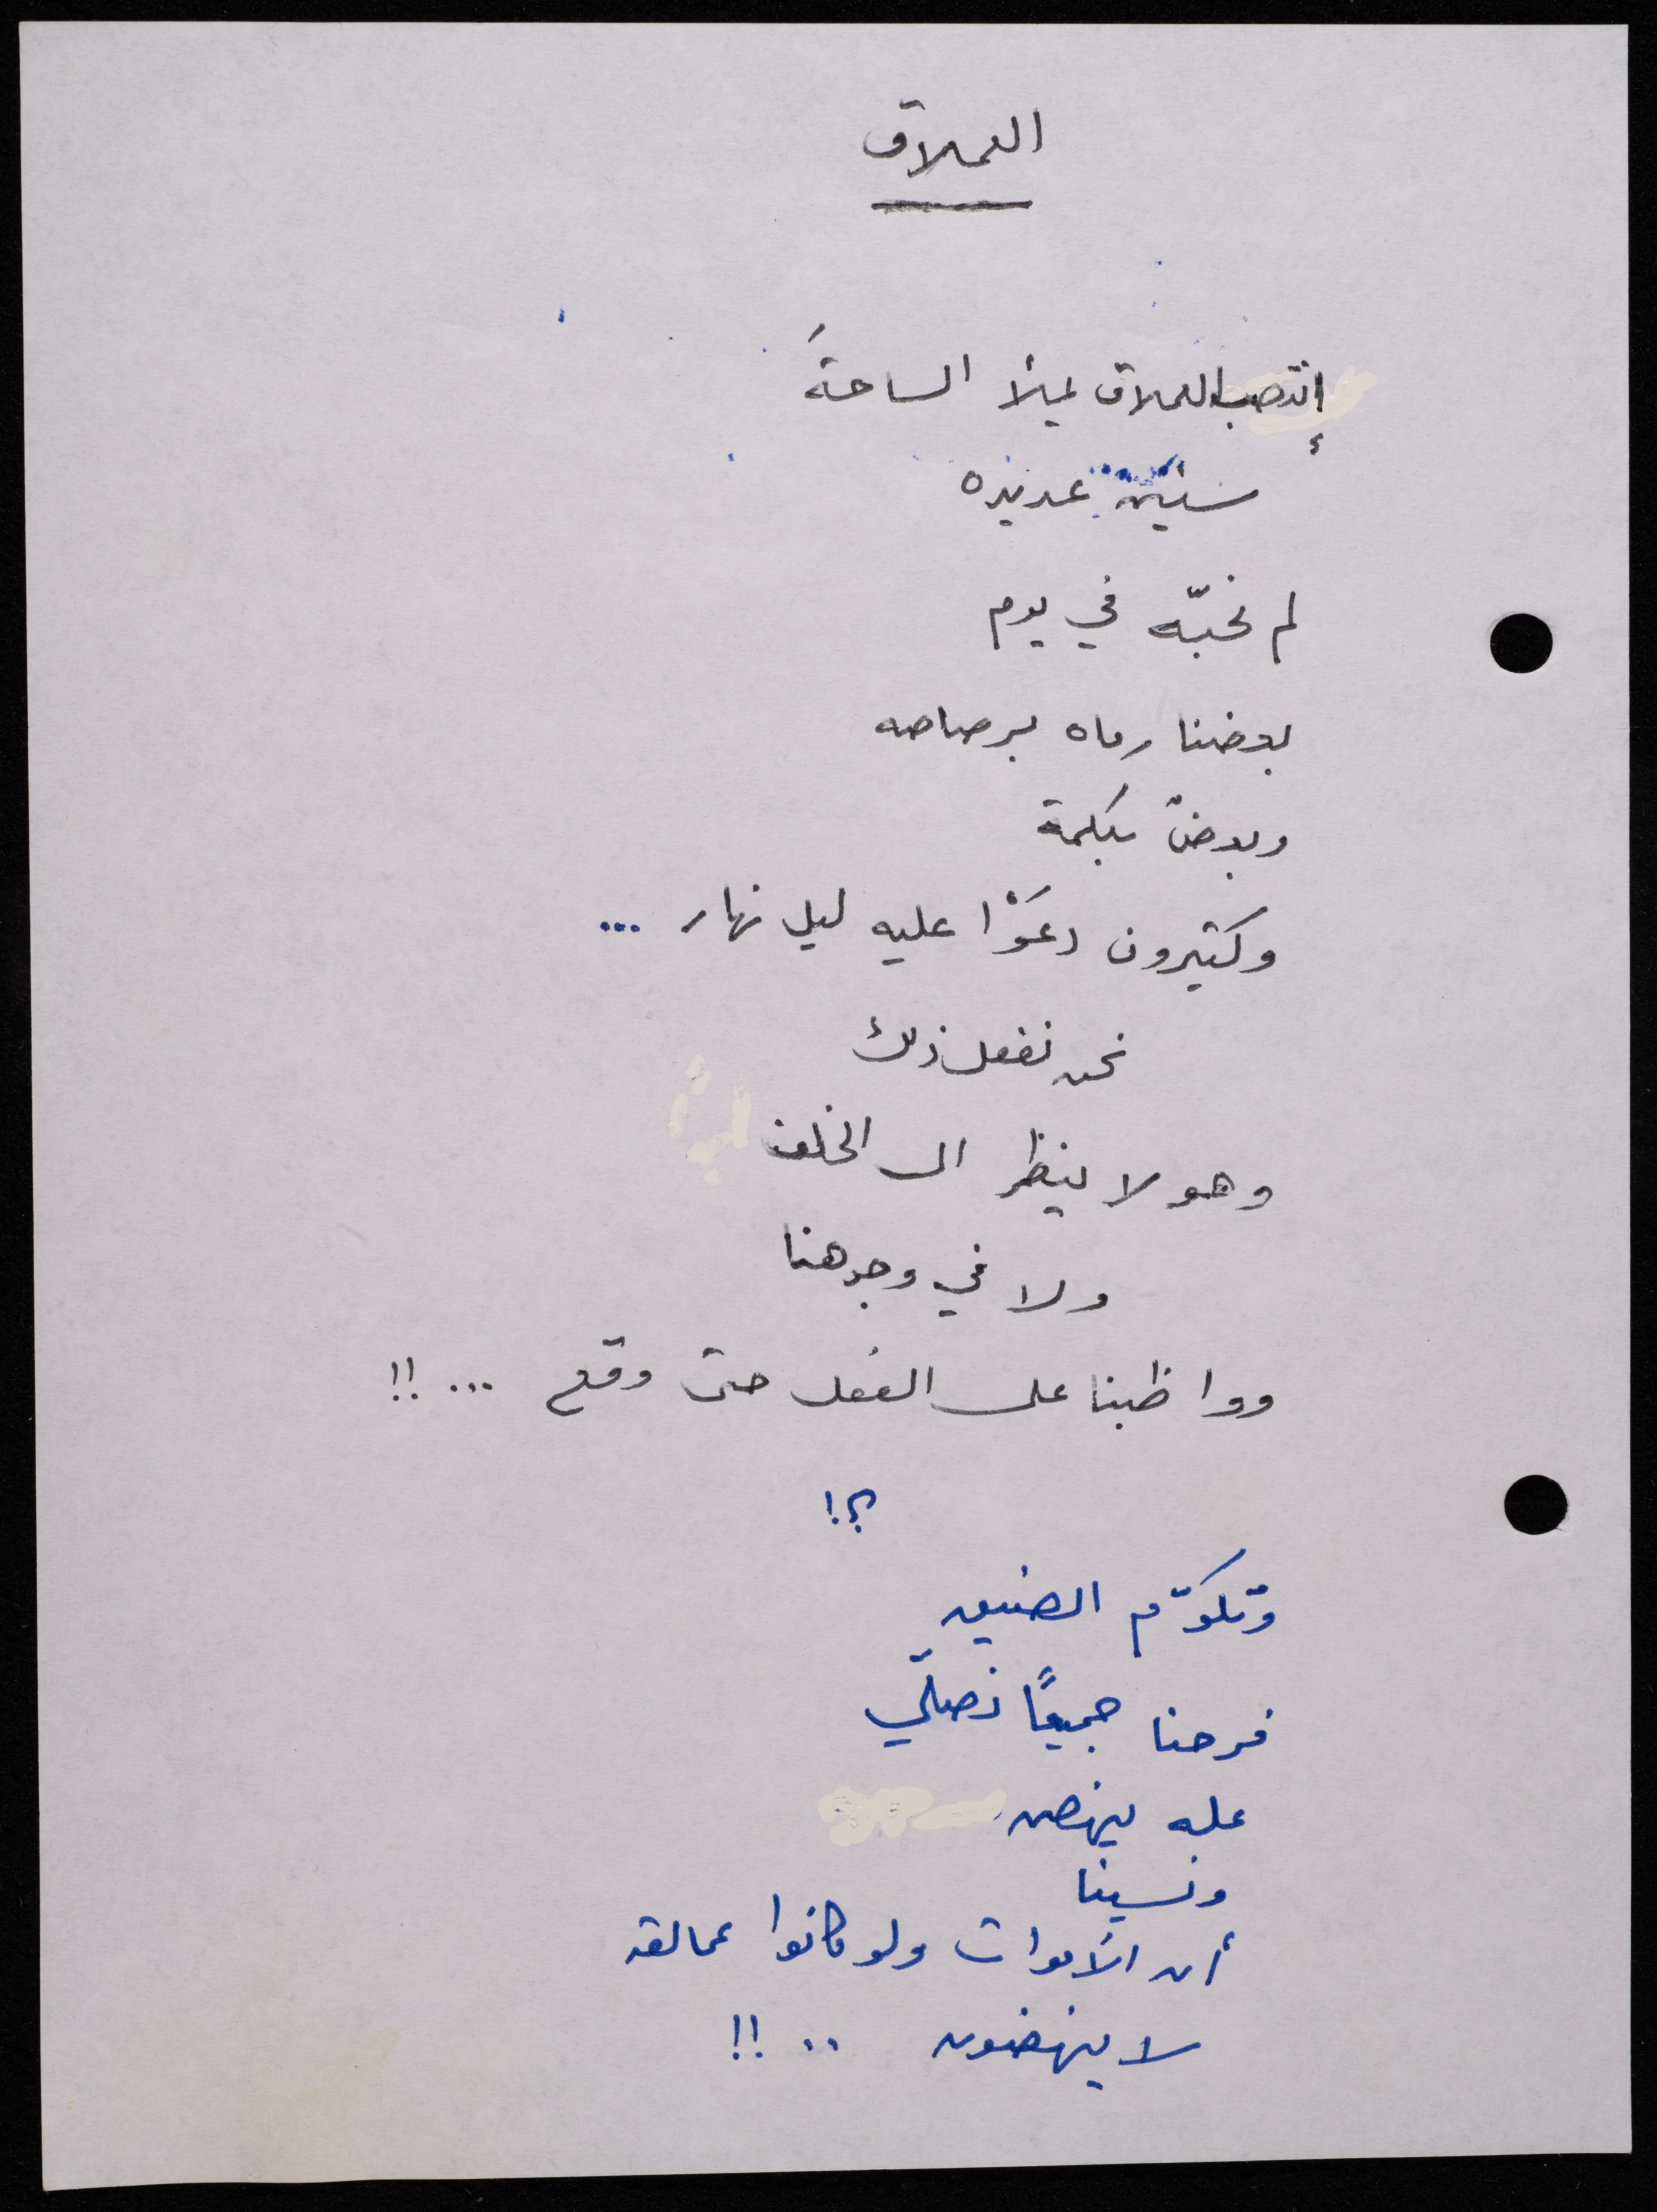 العملاق
إنتصب العملاق يملأ الساحةَ
سنين عديده
لم نحبّه في يوم
بعضنا رماه برصاصه
وبعضٌ بكلمة
وكثيرون دعَوْا عليه ليل نهار ...
نحن نفعل ذلك
وهو لا ينظر الى الخلف
ولا في وجوهنا
وواظبنا على الفعل حتى وقع ... !!
؟!
وتكوّم الضيق
فرحنا جميعًا نصلّي
عله ينهض
ونسينا
أن الأموات ولو كانوا عمالقه
لا ينهضون .. !!